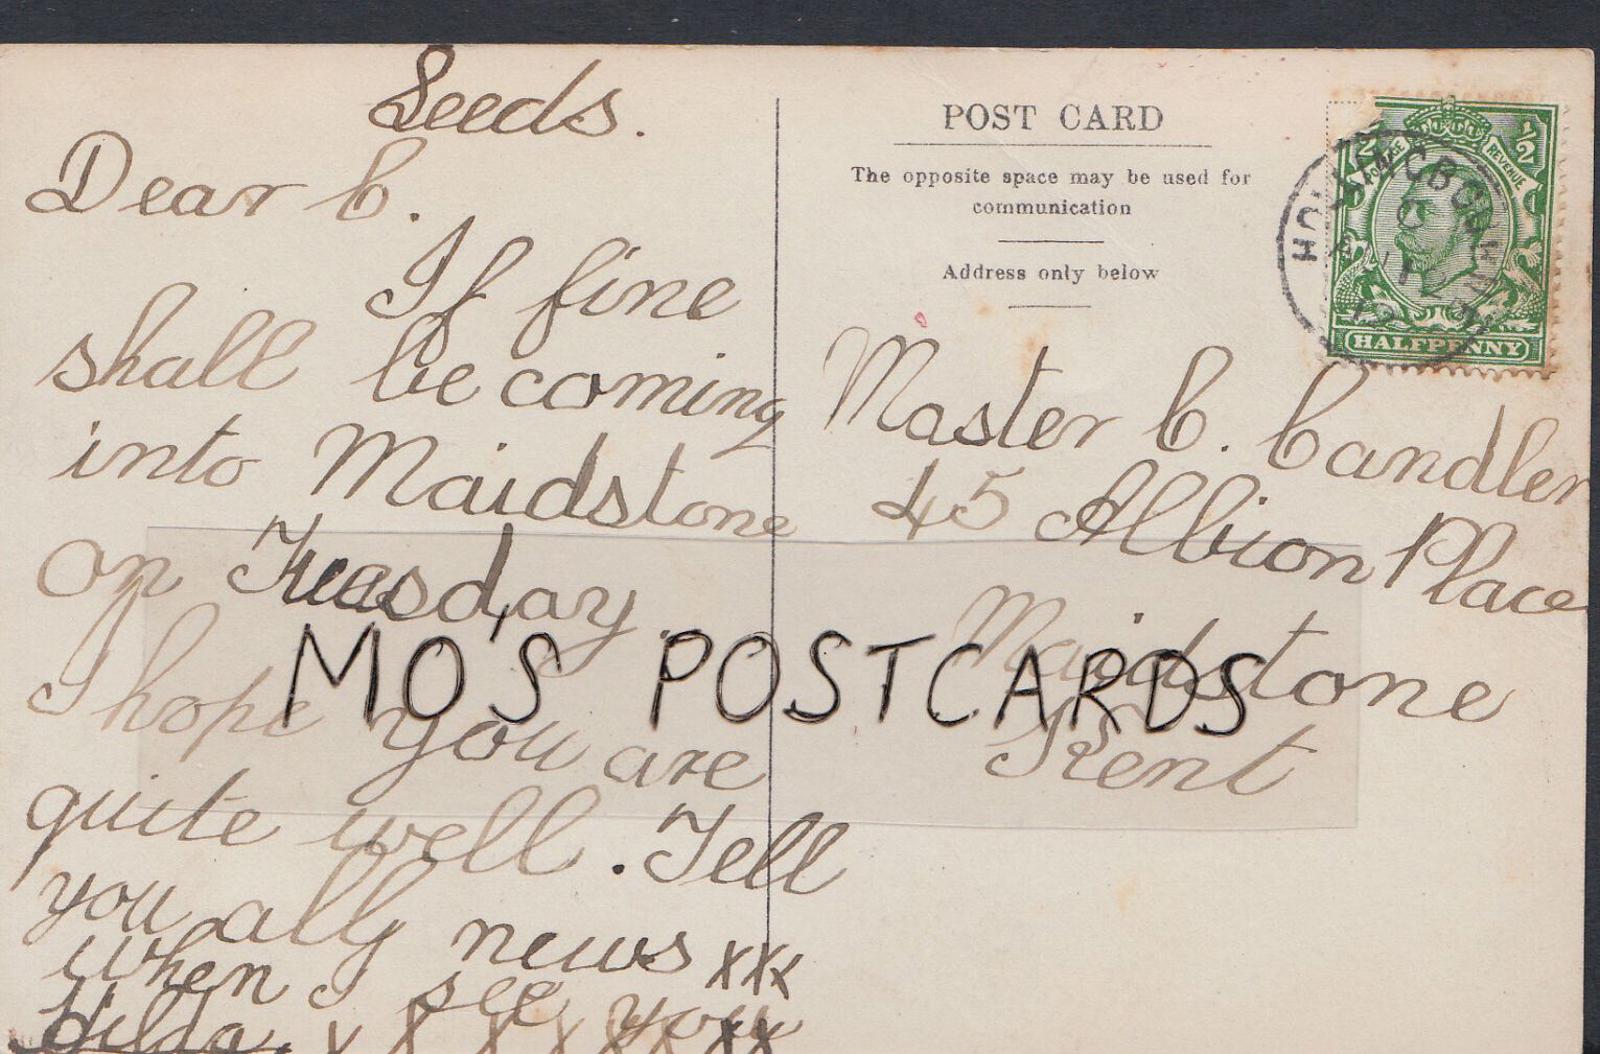 Leeds.
Dear C.
If fine
shall be coming
into Maidstone
on Tuesday.
I hope you are
quite well. Tell
you all news xxx
when I see you
Hilda. x x x x x x xx
POST CARD
The opposite space may be used for
communication
Address only below
Master C. Candler
45 Albion Place
Maidstone
Kent
MO'S POSTCARDS
POSTAGE REVENUE
1/2 1/2
HALFPENNY
HOLLINGBOURNE